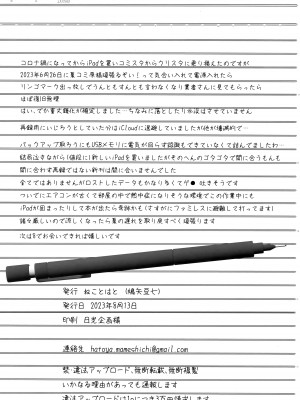 コロナ禍になってからiPadを買いコミスタからクリスタに乗り換えたのですが
2023年6月26日に夏コミ原稿頑張るぞい!って気合い入れて電源入れたら
リンゴマーク出っ放しでうんともすんとも言わなくなり業者さんに見てもらったら
ほぼ復旧無理
はい、でか書大錯化が確定しました…ちなみに落としたり水没はさせていません
再録用にいじろうとしていた分はiCloudに退避していましたが他が壊滅的で…
バックアップ取ろうにもUSBメモリに電気が回らず認識もできていなくて詰んでましたわ…
結局泣きながら1値段に1新しいiPadを買いましたがそのへんのゴタゴタで間に合うもんも
間に合わず再録ではない新刊は間に合いませんでした
全てではありませんがロストしたデータもかなり多くてゲ● 吐きそうです
ついでにエアコンが古くて部屋の中で熱中症になりそうな環境でこの作業中にも
iPadが固まったりして本が出たら奇跡かも(さすがにファミレスに避難して打ってます)
諸々厳しいので涼しくなったら夏の遅れを取り戻すべく頑張ります
次は8でお会いできれば嬉しいです
発行 ねことはと (鳩矢豆七)
発行日 2023年8月13日
印刷 日光企画様
連絡先 hatoya.mameshichi@gmail.com
禁・違法アップロード、無断転載、無断複製
いかなる理由があっても通報します
違法アップロードは1pにつき3万円請求します